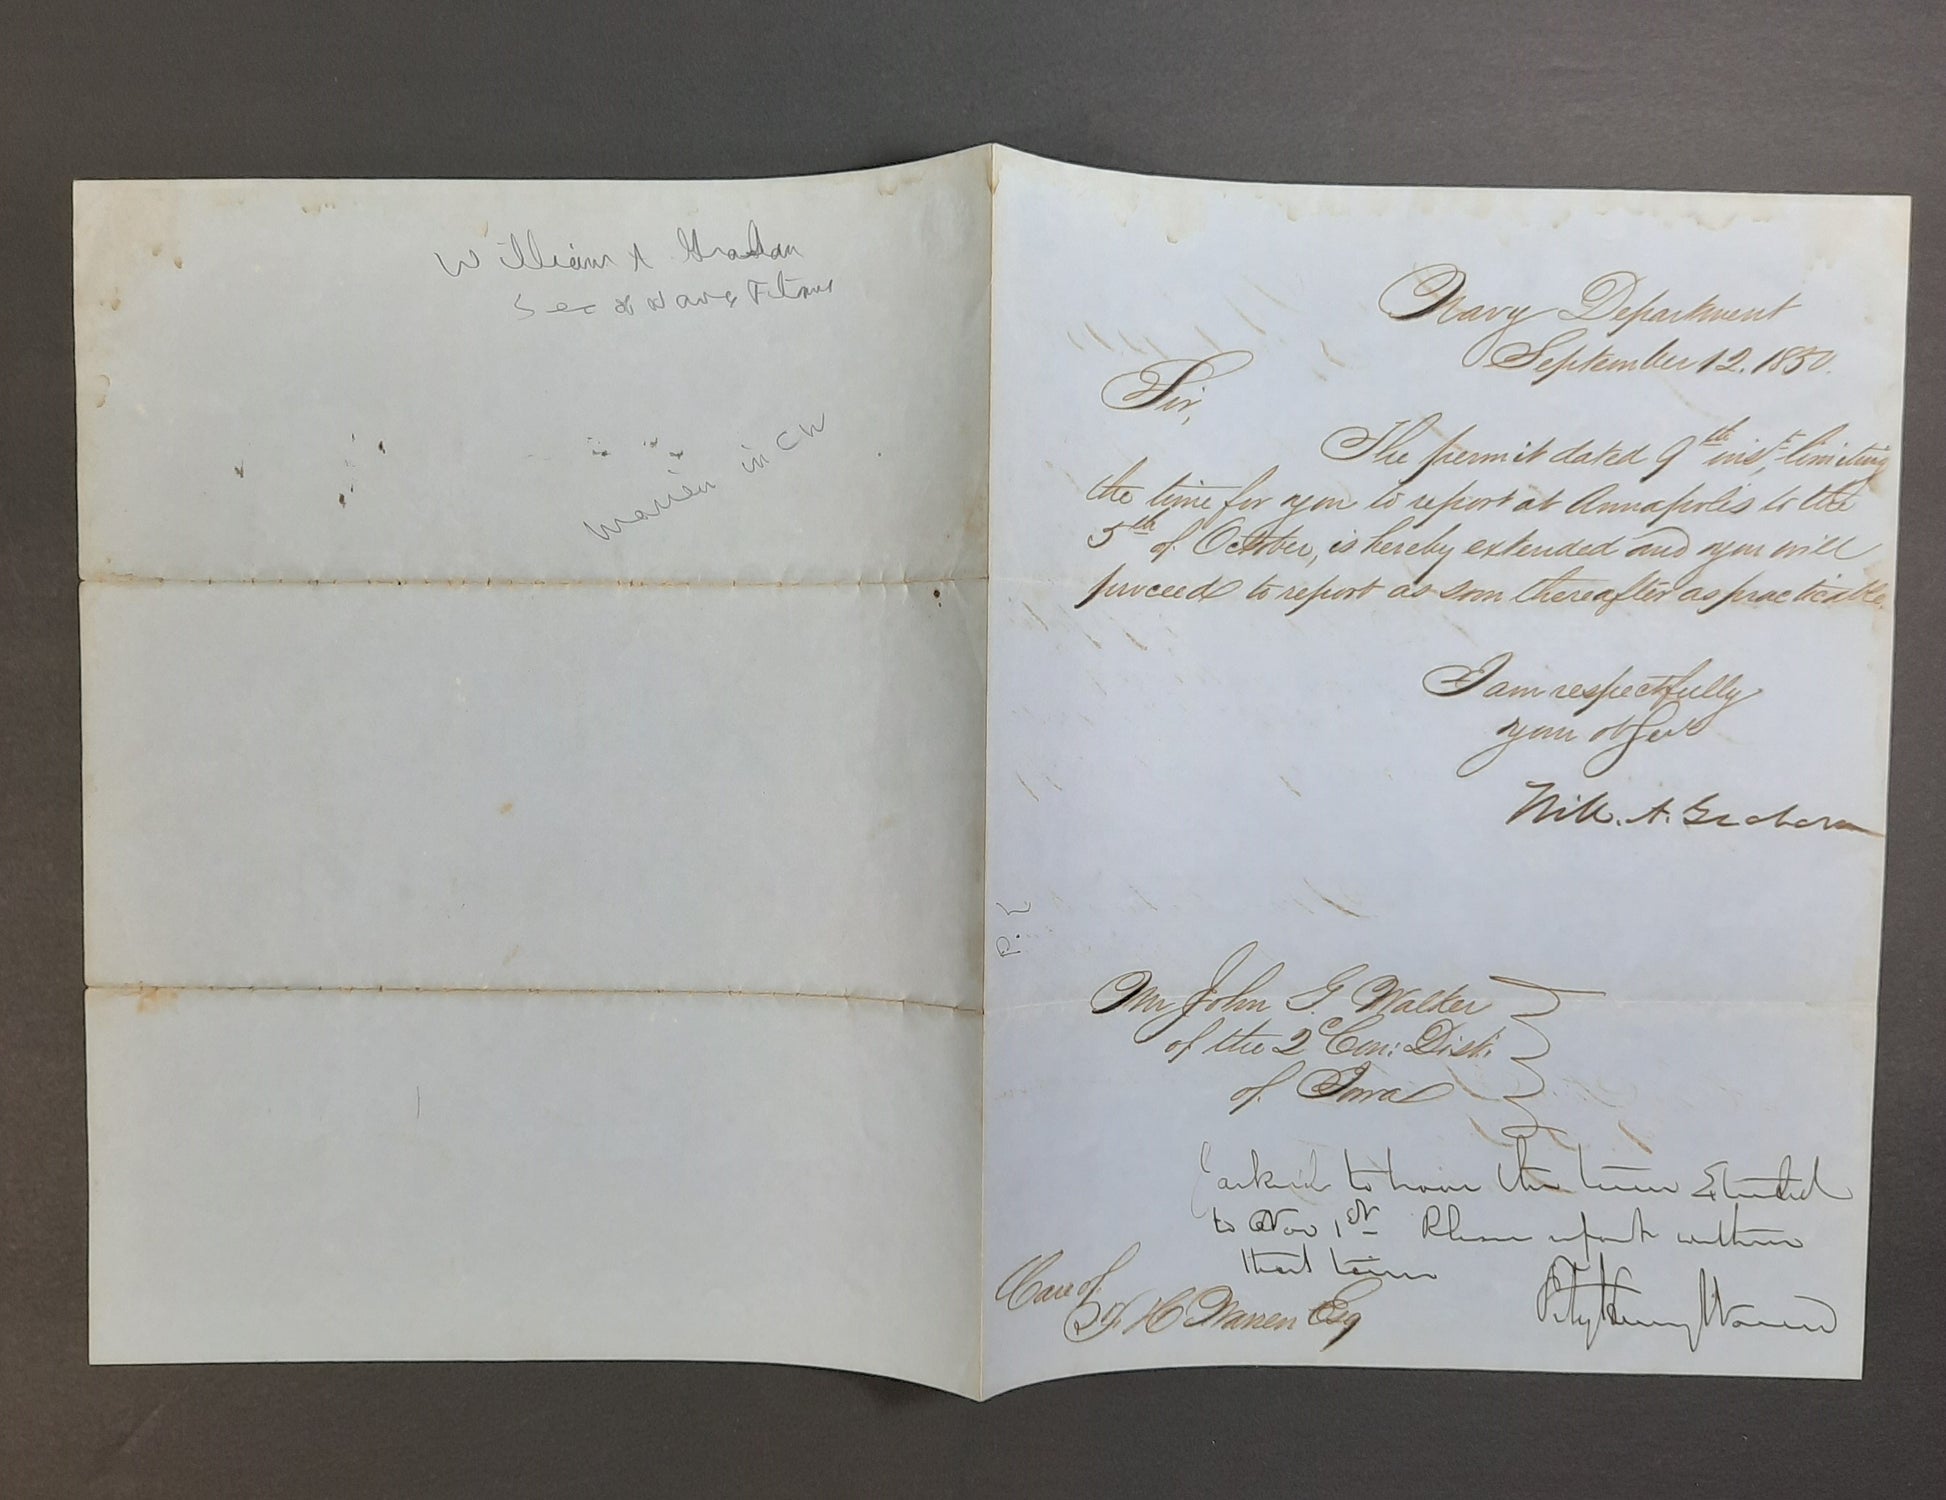 William A Graham
Sec of Navy Filmore
Warren in CW
Navy Department
September 12. 1850.
Sir,
The permit dated 9th inst, limiting
the time for you to report at Annapolis to the
5th of October, is hereby extended and you will
proceed to report as soon thereafter as practicable.
I am respectfully
your ob Servt
Will. A. Graham
P. L
Mr John G. Walker
of the 2d Con: Dist:
of Iowa
I asked to have the time Extended
to Nov 1st Please report within
that time
Fitz Henry Warren
Care of
F. H Warren Esq